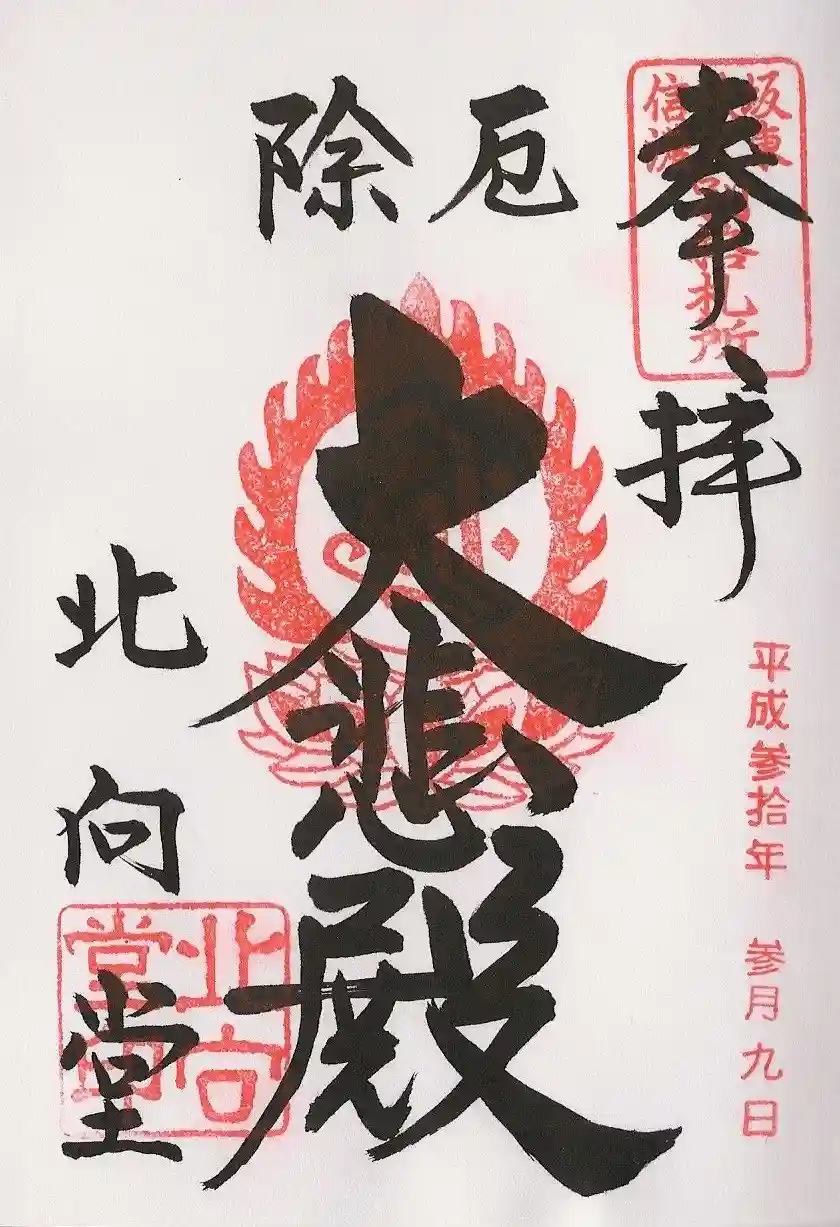 奉拝
平成参拾年 参月九日
厄除
大悲殿
北向堂
坂東
信濃
札所
北向
堂印